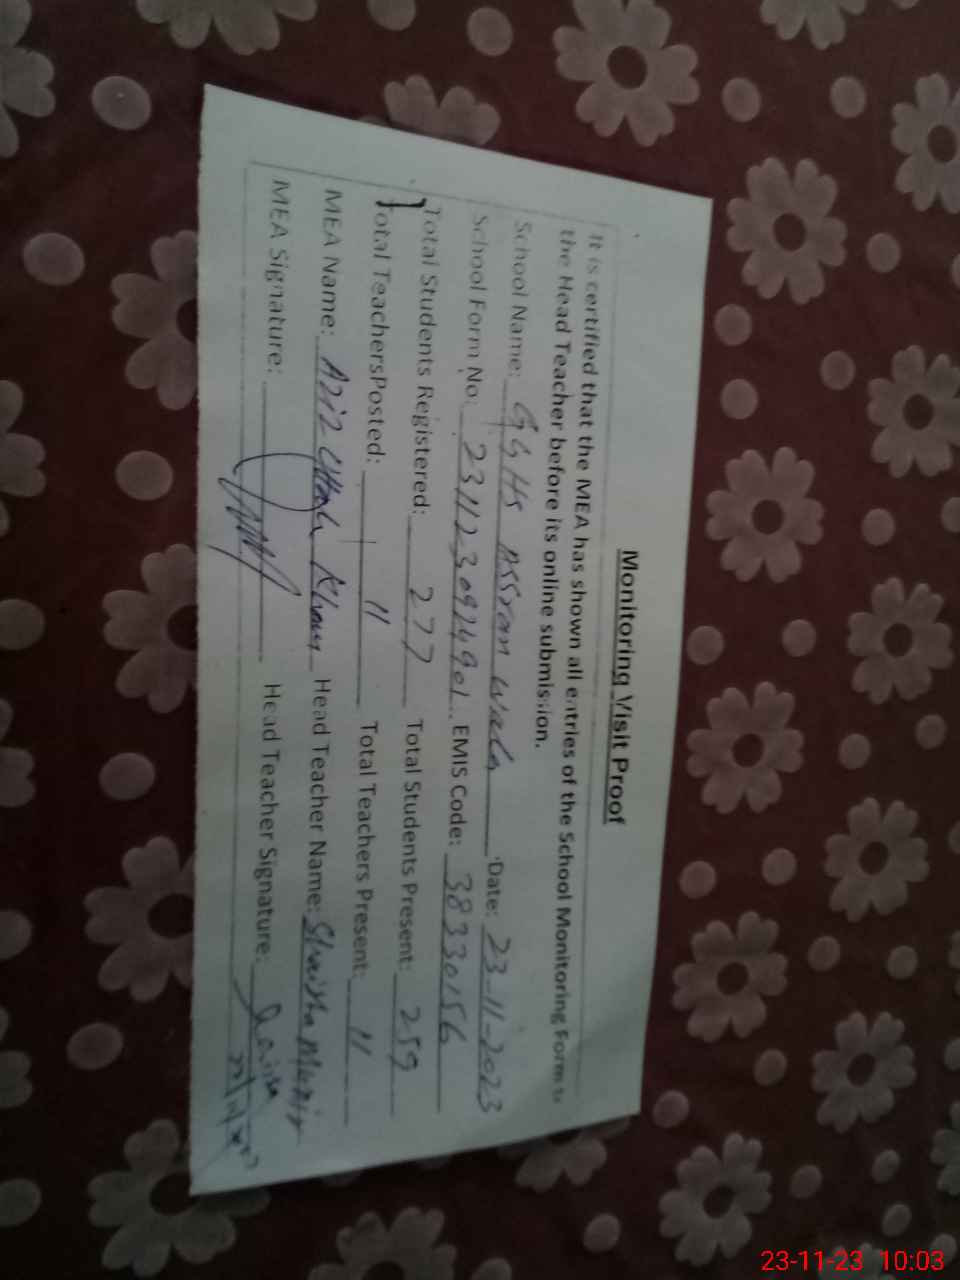 Monitoring Visit Proof
It is certified that the MEA has shown all entries of the School Monitoring Form to
the Head Teacher before its online submission.
School Name: GGHS Assran Wala Date: 23-11-2023
School Form No: 2311230914901 EMIS Code: 38330156
Total Students Registered: 277 Total Students Present: 259
Total TeachersPosted: 11 Total Teachers Present: 11
MEA Name: Aziz Ullah Khan Head Teacher Name: Munir
MEA Signature: Head Teacher Signature:
23-11-23 10:03